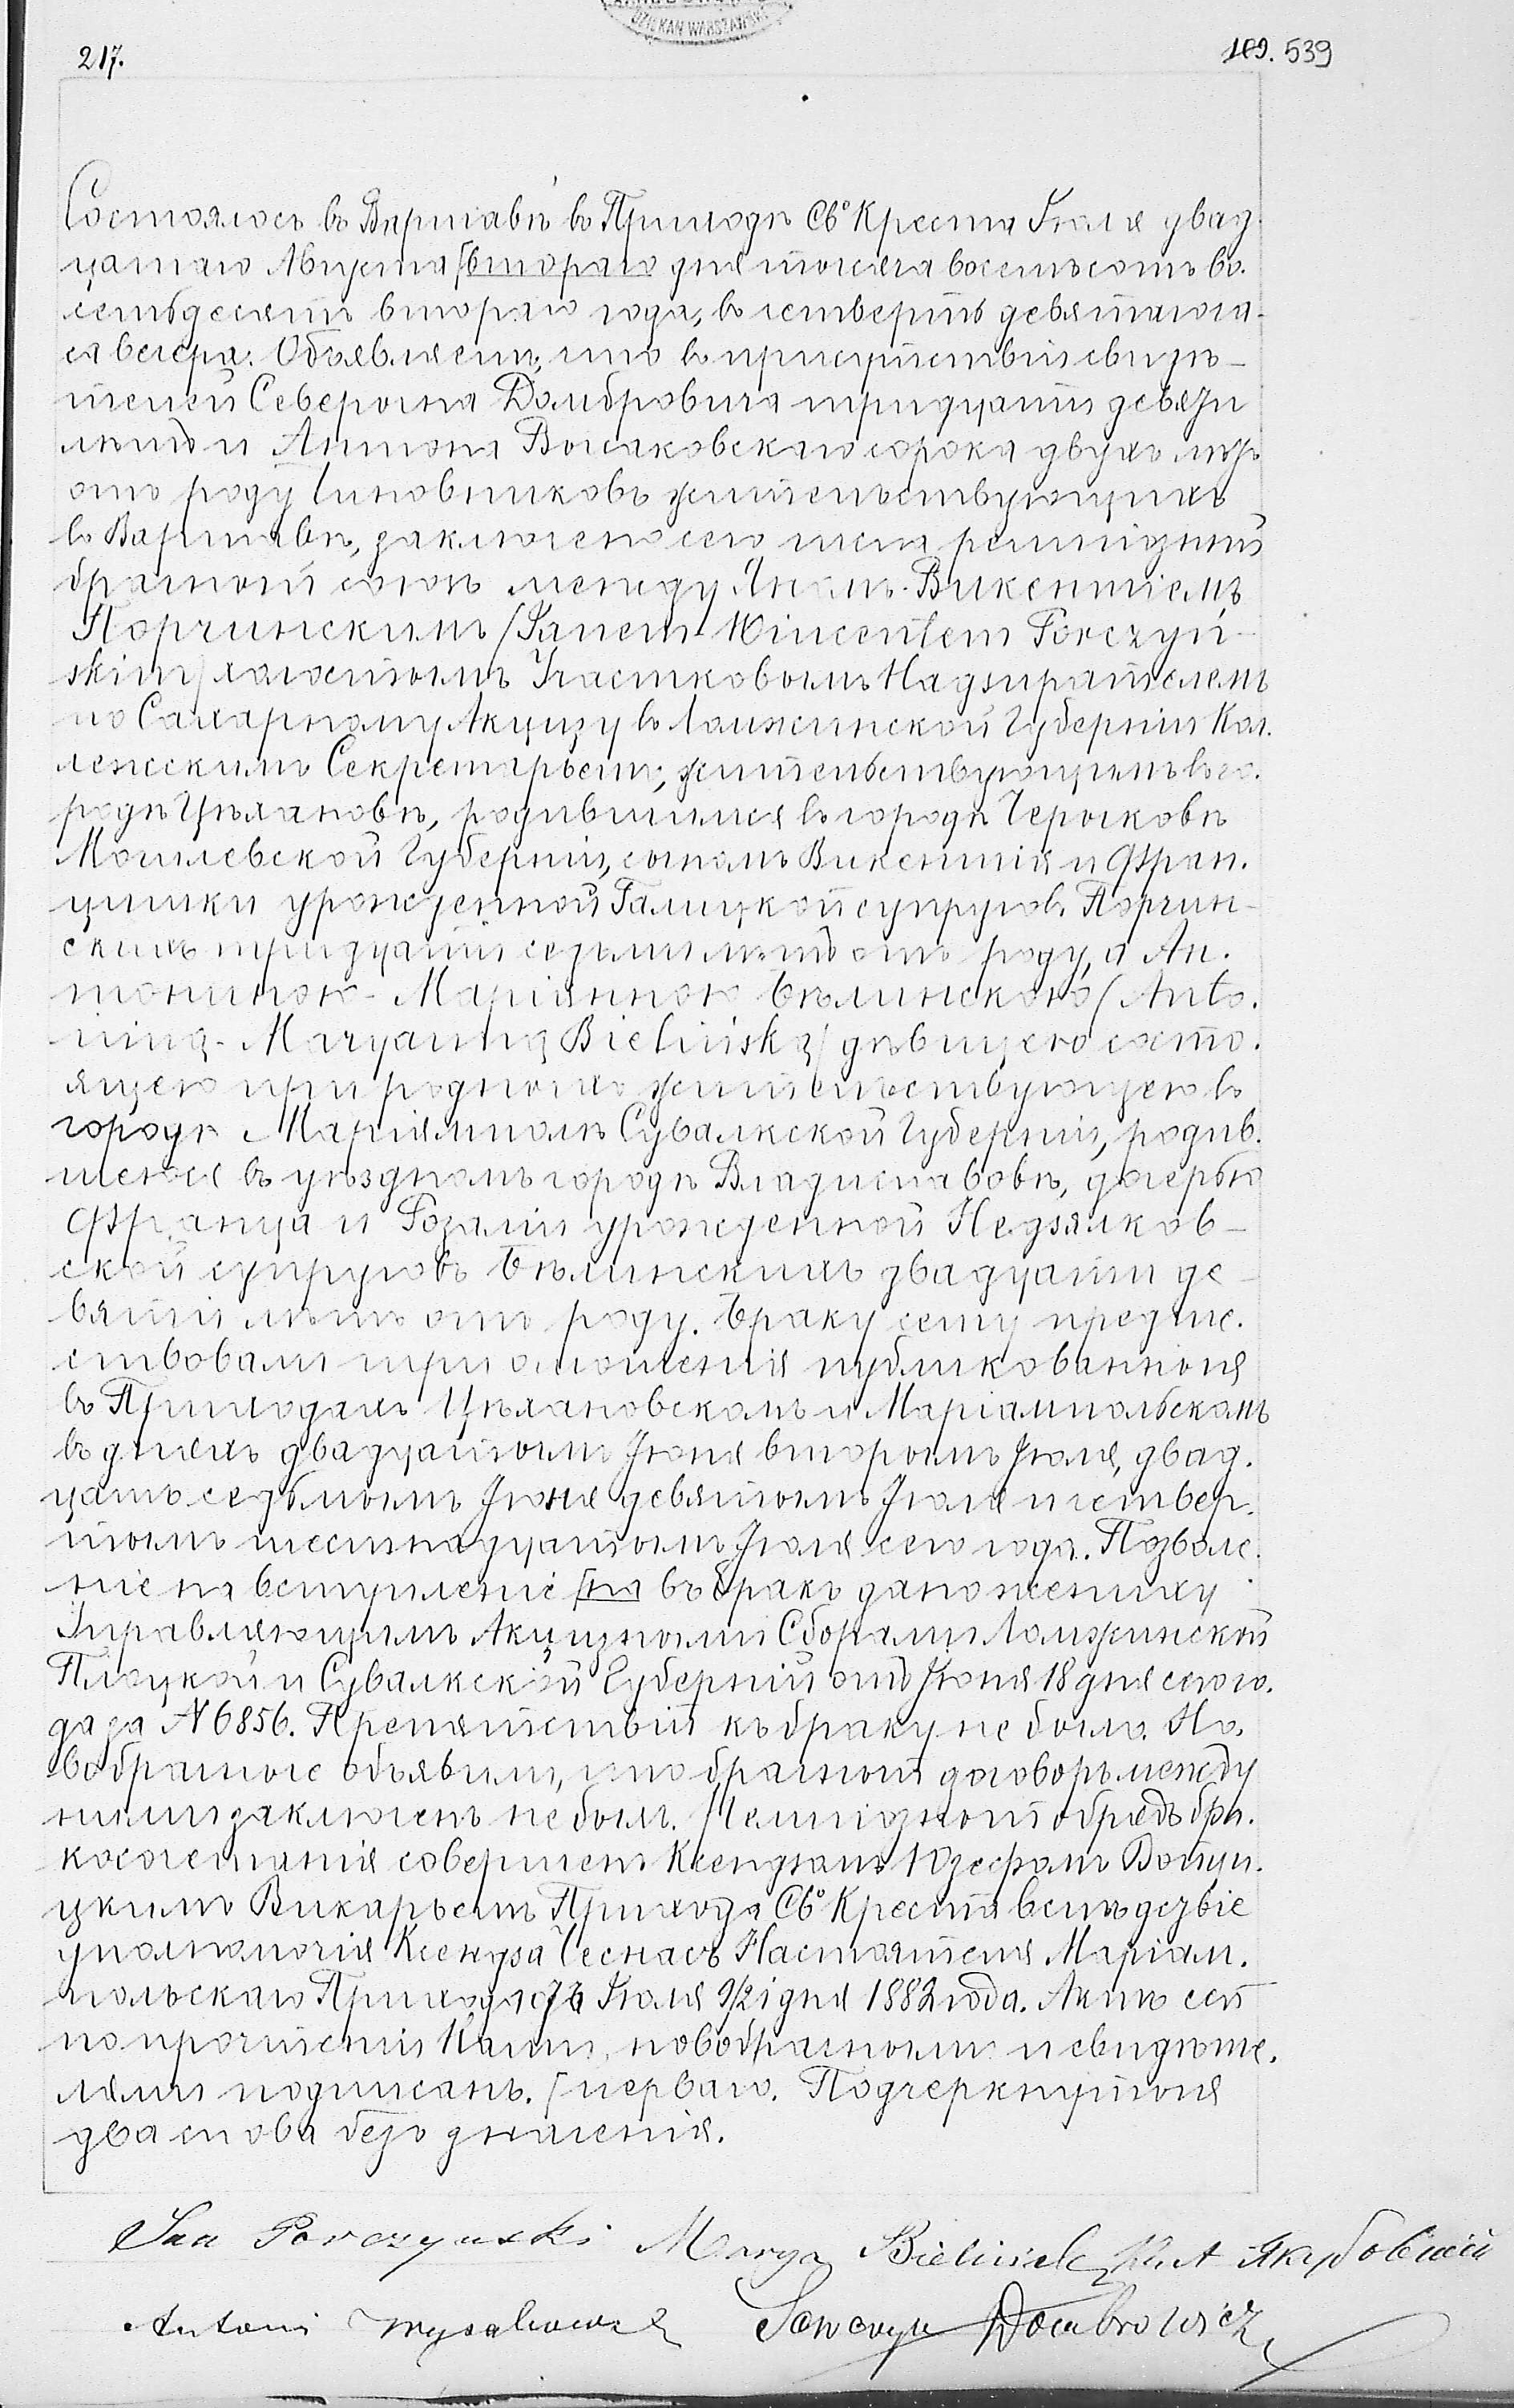 DZIEKAN WARSZAWSKI
217.
189. 539
Состоялось въ Варшавѣ въ Приходѣ Свᵒ Креста Іюля двад
цатаго Августа [втораго дня тысяча восемьсотъ во.
семьдесятъ втораго года, въ четверть девятаго ча-
са вечера. Объявляемъ, что въ присутствіи свидѣ-
телей Северына Домбровича тридцати девяти
лѣтъ и Антона Высаковскаго сорока двухъ лѣтъ
отъ роду Чиновниковъ жительствующихъ
въ Варшавѣ, заключенъ сего числа религіозный
брачный союзъ между Яномъ-Викентіемъ
Порчинскимъ (Janem-Wincentem Porczyń-
skim) холостымъ Участковымъ Надзирателемъ
по Сахарному Акцизу въ Ломжинской Губерніи Кол.
лежскимъ Секретарьемъ, жительствующимъ въ го.
родѣ Цѣхановѣ, родившимся въ городѣ Чериковѣ
Могилевской Губерніи, сыномъ Викентія и Фран.
цишки урожденной Галицкой супруговъ Порчин-
скихъ тридцати седьми лѣтъ отъ роду, и Ан.
тониною-Маріанною Бѣлинскою (Anto.
niną-Maryanną Bielińską) дѣвицею состо.
ящею при родныхъ жительствующею въ
городѣ Маріямполѣ Сувалкской Губерніи, родив.
шеюся въ уѣздномъ городѣ Владиславовѣ, дочерью
Франца и Розаліи урожденной Недзялков-
ской супруговъ Бѣлинскихъ двадцати де-
вяти лѣтъ отъ роду. Браку сему предше.
ствовали три оглашенія публикованныя
въ Приходахъ Цѣхановскомъ и Маріампольскомъ
въ дняхъ двадцатомъ Іюня второмъ Іюля, двад.
цать седьмомъ Іюня девятомъ Іюля и четвер.
томъ шестнадцатомъ Іюля сего года. Позволе.
ніе на вступленіе [на въ бракъ дано жениху
Управляющимъ Акцизными Сборами Ломжинской
Плоцкой и Сувалкской Губерній отъ Іюня 18 дня сего го.
да за № 6856. Препятствій къ браку не было. Но.
вобрачные объявили, что брачный договоръ между
ними заключенъ не былъ. Религіозный обрядъ бра.
косочетанія совершенъ Ксендзомъ Юзефомъ
Викарьемъ Прихода Свᵒ Креста вслѣдствіе
уполномочія Ксендза Чеснасъ Настоятеля Маріам.
польскаго Прихода Іюля 9/21 дня 1882 года. Актъ сей
по прочтеніи Нами, новобрачными и свидѣте.
лями подписанъ. [перваго. Подчеркнутыя
два слова безъ значенія.
Jan Porczyński Marya Bielińska Кс. А Якубовскій
Antoni Wysakowski Seweryn Dombrowicz